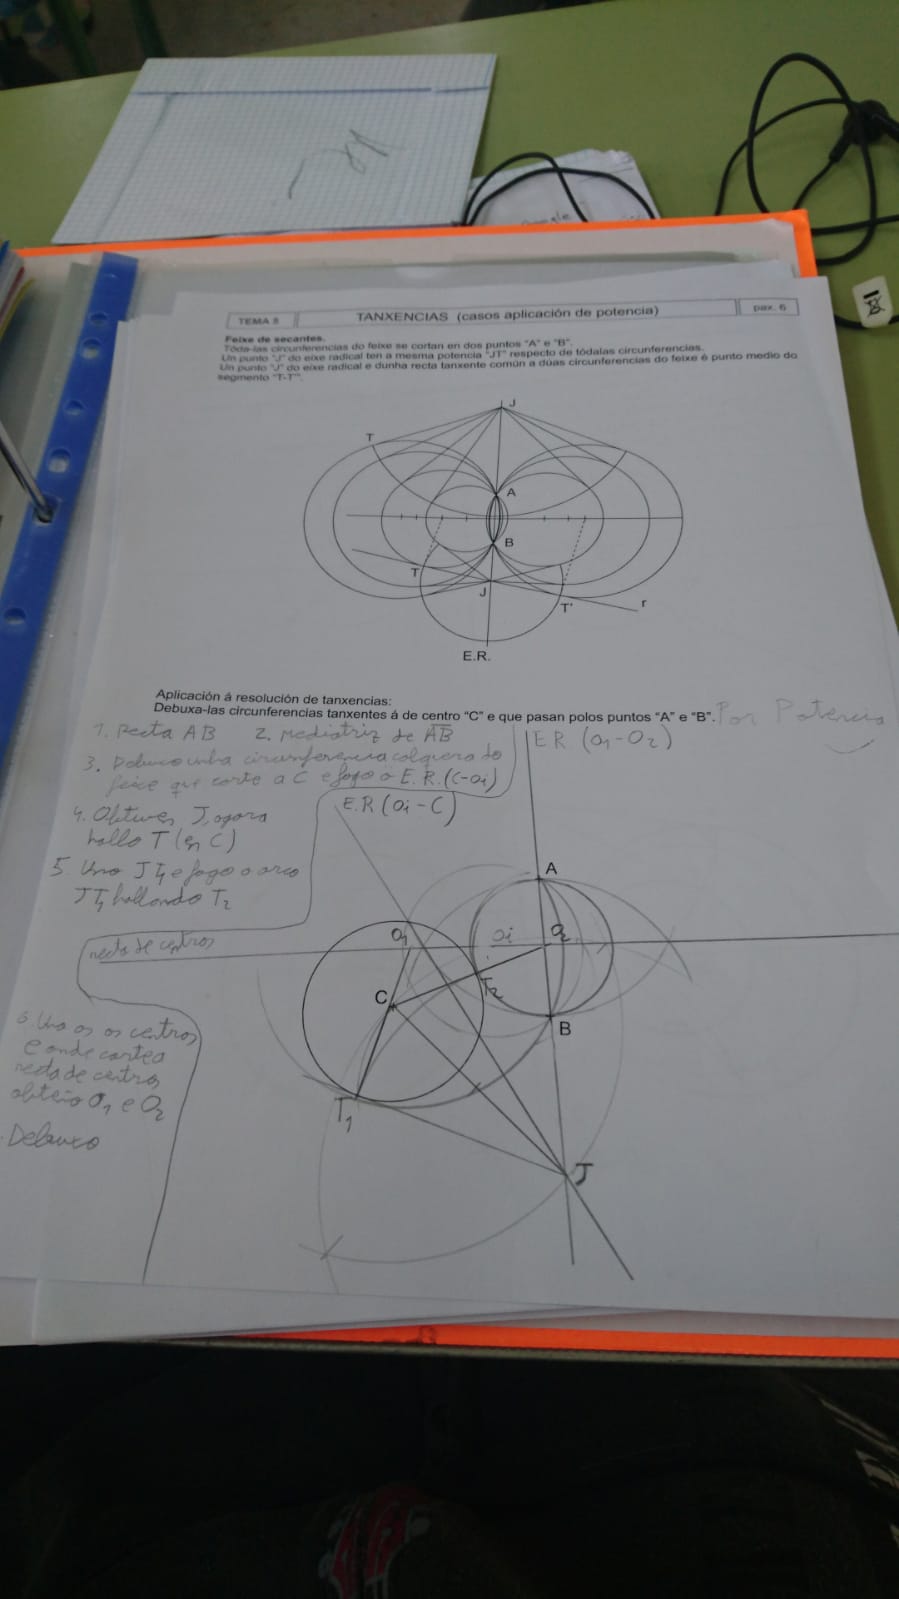 TEMA 8
TANXENCIAS (casos aplicación de potencia)
pax. 6
Feixe de secantes.
Tóda-las circunferencias do feixe se cortan en dos puntos "A" e "B".
Un punto "J" do eixe radical ten a mesma potencia "JT" respecto de tódalas circunferencias.
Un punto "J" do eixe radical e dunha recta tanxente común a dúas circunferencias do feixe é punto medio do
segmento "T-T'".
J
T
A
B
T
J
T'
r
E.R.
Aplicación á resolución de tanxencias:
Debuxa-las circunferencias tanxentes á de centro "C" e que pasan polos puntos "A" e "B". Por Potencia
1. Recta AB 2. Mediatriz de AB
E R (O1-O2)
3. Debuxo unha circunferencia calquera do
feixe que corte a C e fago o E.R. (C-Oi)
E.R (Oi-C)
4. Obtiven J, agora
hallo T (en C)
5. Uno JT1 e fago o arco
JT1 hallando T2
A
recta de centros
O1
Oi
O2
T2
C
B
6. Uno os os centros
e onde corte a
recta de centros
obteño O1 e O2
Debuxo
T1
J